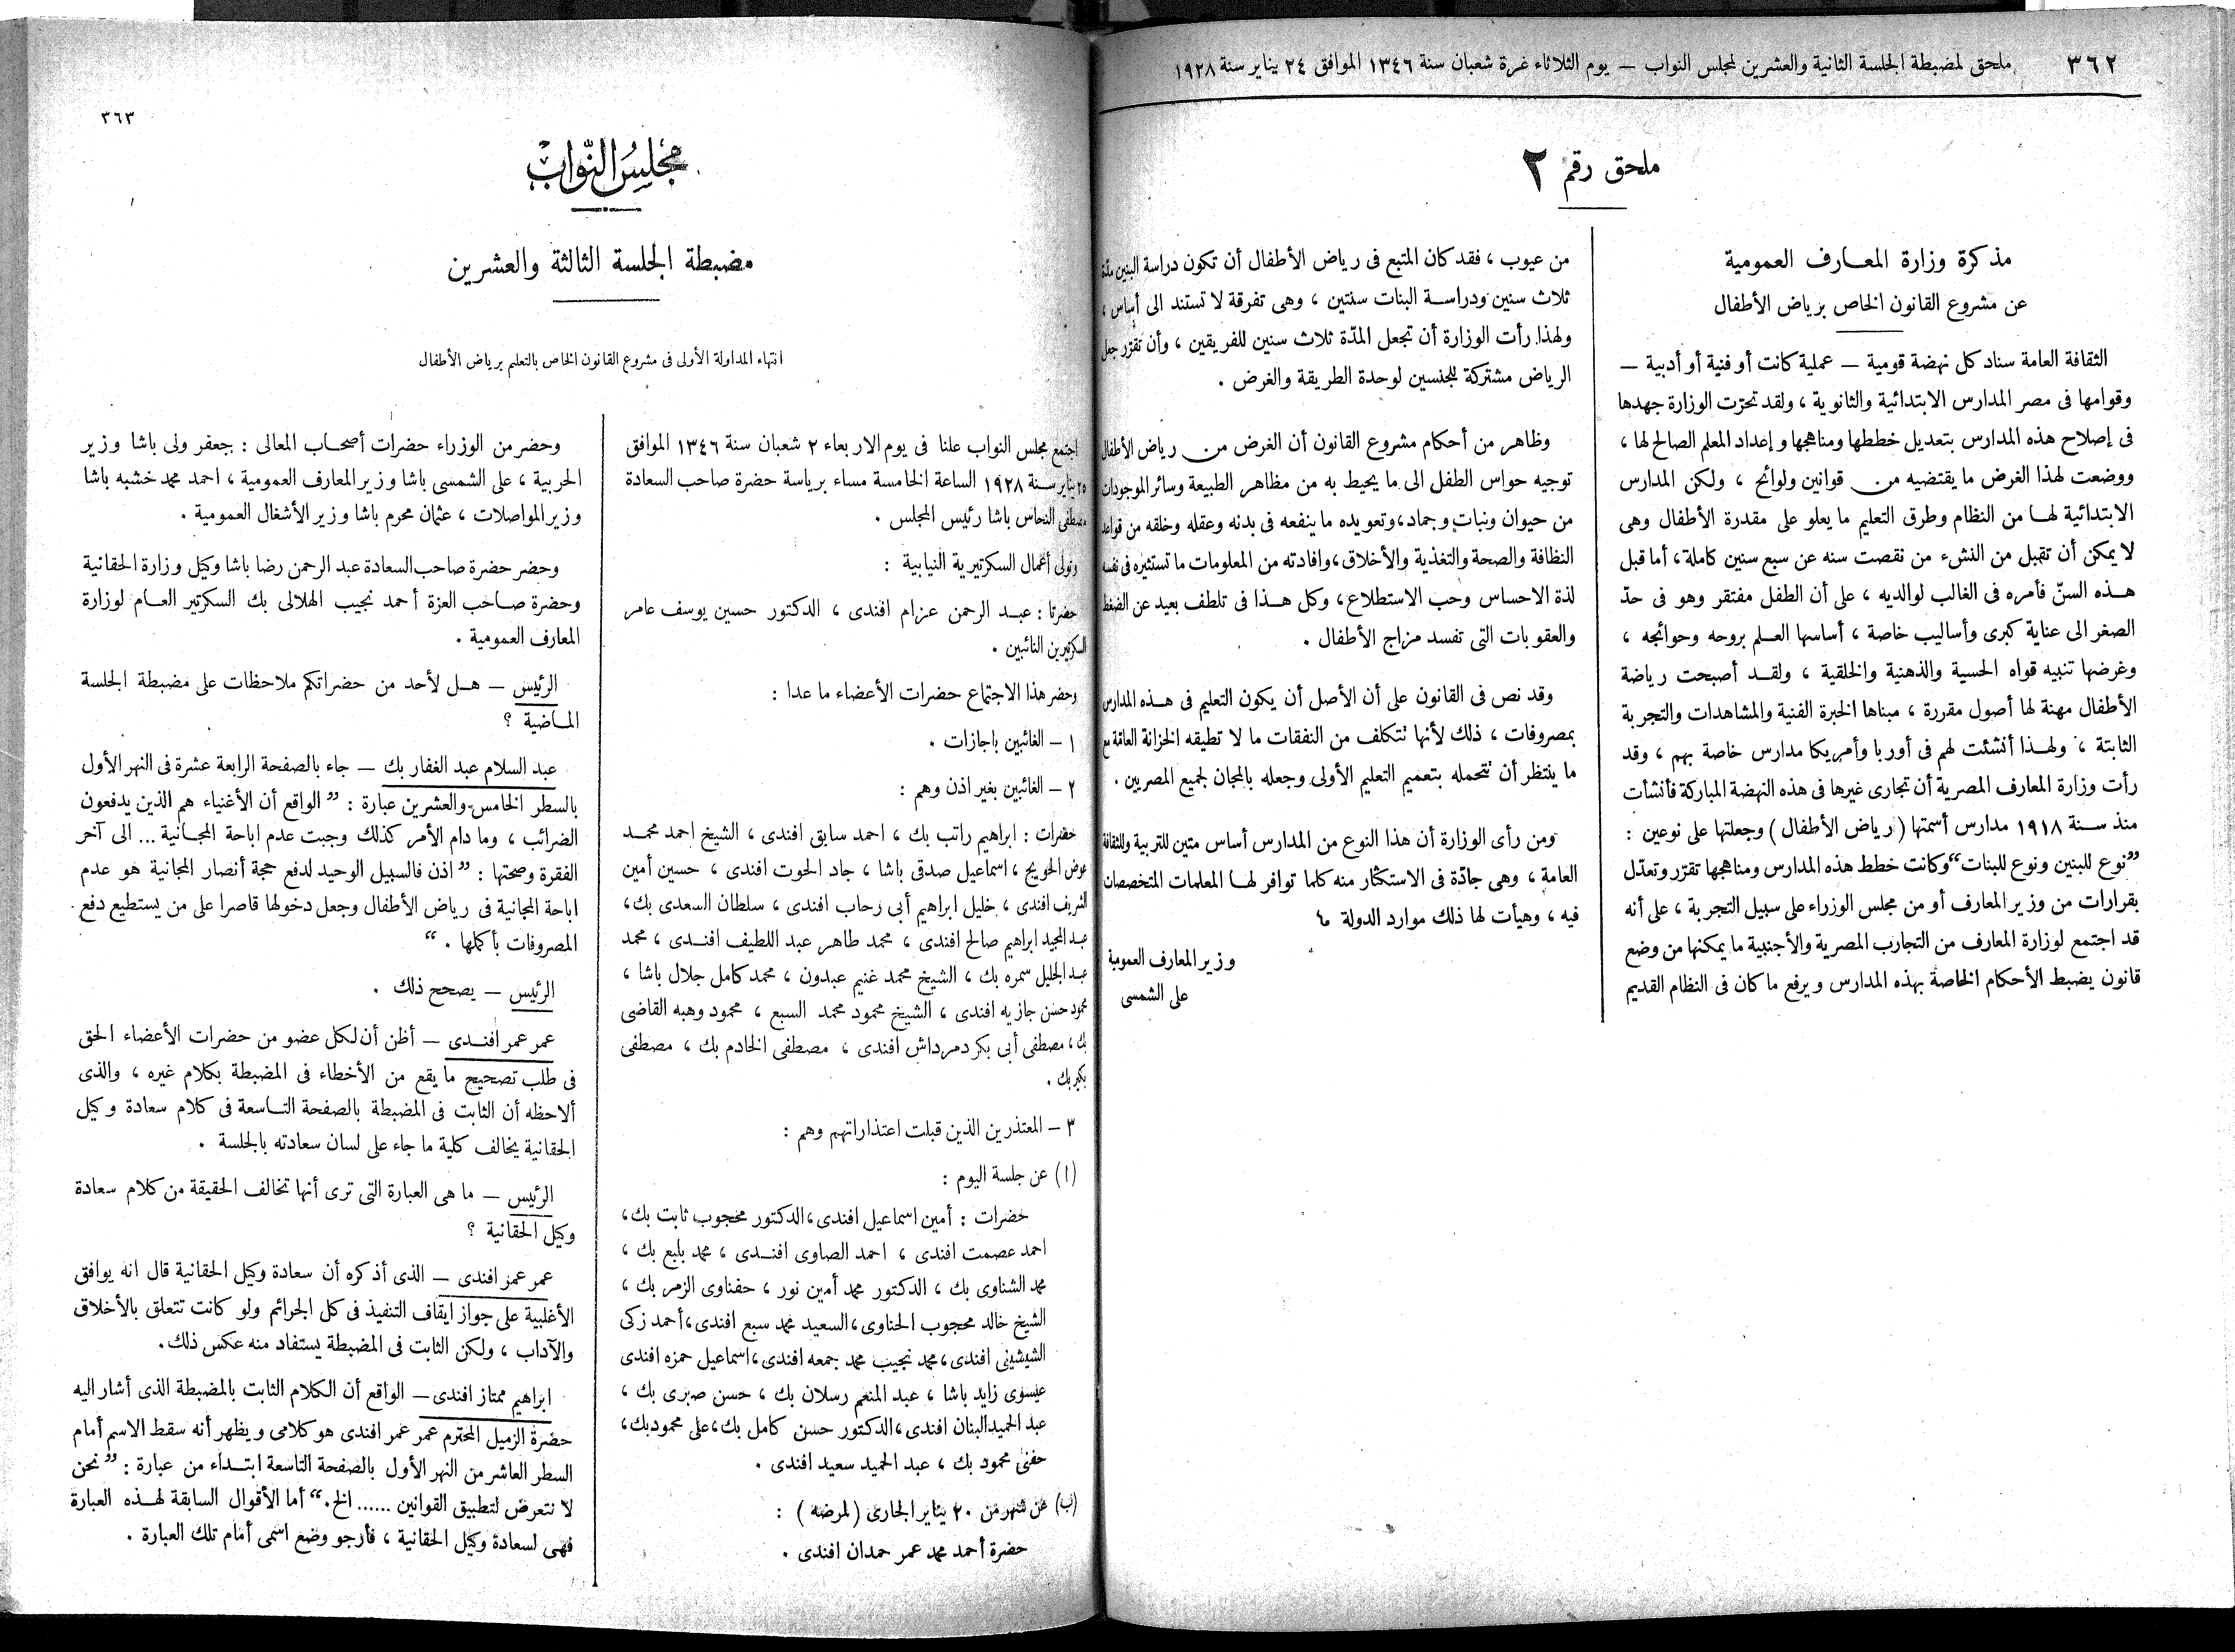 ٣٦٢
ملحق لمضبطة الجلسة الثانية والعشرين لمجلس النواب — يوم الثلاثاء غرة شعبان سنة ١٣٤٦ الموافق ٢٤ يناير سنة ١٩٢٨
ملحق رقم ٢
مذكرة وزارة المعارف العمومية
عن مشروع القانون الخاص برياض الأطفال
الثقافة العامة سناد كل نهضة قومية — عملية كانت أو فنية أو أدبية —
وقوامها فى مصر المدارس الابتدائية والثانوية ، ولقد تحرّت الوزارة جهدها
فى إصلاح هذه المدارس بتعديل خططها ومناهجها وإعداد المعلم الصالح لها ،
ووضعت لهذا الغرض ما يقتضيه من قوانين ولوائح ، ولكن المدارس
الابتدائية لها من النظام وطرق التعليم ما يعلو على مقدرة الأطفال وهى
لا يمكن أن تقبل من النشء من نقصت سنه عن سبع سنين كاملة ، أما قبل
هذه السنّ فأمره فى الغالب لوالديه ، على أن الطفل مفتقر وهو فى حدّ
الصغر الى عناية كبرى وأساليب خاصة ، أساسها العلم بروحه وحوائجه ،
وغرضها تنبيه قواه الحسية والذهنية والخلقية ، ولقد أصبحت رياضة
الأطفال مهنة لها أصول مقررة ، مبناها الخبرة الفنية والمشاهدات والتجربة
الثابتة ، ولهذا أنشئت لهم فى أوربا وأمريكا مدارس خاصة بهم ، وقد
رأت وزارة المعارف المصرية أن تجارى غيرها فى هذه النهضة المباركة فأنشأت
منذ سنة ١٩١٨ مدارس أسمتها (رياض الأطفال) وجعلتها على نوعين :
”نوع للبنين ونوع للبنات“ وكانت خطط هذه المدارس ومناهجها تقرّر وتعدّل
بقرارات من وزير المعارف أو من مجلس الوزراء على سبيل التجربة ، على أنه
قد اجتمع لوزارة المعارف من التجارب المصرية والأجنبية ما يمكنها من وضع
قانون يضبط الأحكام الخاصة بهذه المدارس ويرفع ما كان فى النظام القديم
من عيوب ، فقد كان المتبع فى رياض الأطفال أن تكون دراسة البنين مدّة
ثلاث سنين ودراسة البنات سنتين ، وهى تفرقة لا تستند الى أساس ،
ولهذا رأت الوزارة أن تجعل المدّة ثلاث سنين للفريقين ، وأن تقرّر جعل
الرياض مشتركة للجنسين لوحدة الطريقة والغرض .
وظاهر من أحكام مشروع القانون أن الغرض من رياض الأطفال
توجيه حواس الطفل الى ما يحيط به من مظاهر الطبيعة وسائر الموجودات
من حيوان ونبات وجماد ، وتعويده ما ينفعه فى بدنه وعقله وخلقه من قواعد
النظافة والصحة والتغذية والأخلاق ، وافادته من المعلومات ما تستثيره فى نفسه
لذة الاحساس وحب الاستطلاع ، وكل هذا فى تلطف بعيد عن الضغط
والعقوبات التى تفسد مزاج الأطفال .
وقد نص فى القانون على أن الأصل أن يكون التعليم فى هذه المدارس
بمصروفات ، ذلك لأنها تتكلف من النفقات ما لا تطيقه الخزانة العامّة مع
ما ينتظر أن تتحمله بتعميم التعليم الأولى وجعله بالمجان لجميع المصريين .
ومن رأى الوزارة أن هذا النوع من المدارس أساس متين للتربية وللثقافة
العامة ، وهى جادّة فى الاستكثار منه كلما توافر لها المعلمات المتخصصات
فيه ، وهيأت لها ذلك موارد الدولة
وزير المعارف العمومية
على الشمسى
٣٦٣
مجلس النواب
مضبطة الجلسة الثالثة والعشرين
انتهاء المداولة الأولى فى مشروع القانون الخاص بالتعليم برياض الأطفال
اجتمع مجلس النواب علنا فى يوم الاربعاء ٢ شعبان سنة ١٣٤٦ الموافق
٢٥ يناير سنة ١٩٢٨ الساعة الخامسة مساء برياسة حضرة صاحب السعادة
مصطفى النحاس باشا رئيس المجلس .
وتولى أعمال السكرتيرية النيابية :
حضرتا : عبد الرحمن عزام افندى ، الدكتور حسين يوسف عامر
السكرتيرين النائبين .
وحضر هذا الاجتماع حضرات الأعضاء ما عدا :
١ — الغائبين باجازات .
٢ — الغائبين بغير اذن وهم :
حضرات : ابراهيم راتب بك ، احمد سابق افندى ، الشيخ احمد محمد
عوض الحويج ، اسماعيل صدقى باشا ، جاد الحوت افندى ، حسين أمين
الشريف افندى ، خليل ابراهيم أبى رحاب افندى ، سلطان السعدى بك ،
عبد المجيد ابراهيم صالح افندى ، محمد طاهر عبد اللطيف افندى ، محمد
عبد الجليل سمره بك ، الشيخ محمد غنيم عبدون ، محمد كامل جلال باشا ،
محمود حسن جازيه افندى ، الشيخ محمود محمد السبع ، محمود وهبه القاضى
بك ، مصطفى أبى بكر دمرداش أفندى ، مصطفى الخادم بك ، مصطفى
بكير بك .
٣ — المعتذرين الذين قبلت اعتذاراتهم وهم :
(ا) عن جلسة اليوم :
حضرات : أمين اسماعيل افندى ، الدكتور محجوب ثابت بك ،
احمد عصمت افندى ، احمد الصاوى افندى ، محمد بليع بك ،
محمد الشناوى بك ، الدكتور محمد أمين نور ، حفناوى الزمر بك ،
الشيخ خالد محجوب الحناوى ، السعيد محمد سبع افندى ، أحمد زكى
الشيشينى افندى ، محمد نجيب محمد جمعه افندى ، اسماعيل حمزه افندى
عيسوى زايد باشا ، عبد المنعم رسلان بك ، حسن صبرى بك ،
عبد الحميد البنان افندى ، الدكتور حسن كامل بك ، على محمود بك ،
حفنى محمود بك ، عبد الحميد سعيد افندى .
(ب) عن شهر من ٢٠ يناير الجارى (لمرضه) :
حضرة أحمد محمد عمر حمدان افندى .
وحضر من الوزراء حضرات أصحاب المعالى : جعفر ولى باشا وزير
الحربية ، على الشمسى باشا وزير المعارف العمومية ، احمد محمد خشبه باشا
وزير المواصلات ، عثمان محرم باشا وزير الأشغال العمومية .
وحضر حضرة صاحب السعادة عبد الرحمن رضا باشا وكيل وزارة الحقانية
وحضرة صاحب العزة أحمد نجيب الهلالى بك السكرتير العام لوزارة
المعارف العمومية .
الرئيس — هل لأحد من حضراتكم ملاحظات على مضبطة الجلسة
الماضية ؟
عبد السلام عبد الغفار بك — جاء بالصفحة الرابعة عشرة فى النهر الأول
بالسطر الخامس والعشرين عبارة : ”الواقع أن الأغنياء هم الذين يدفعون
الضرائب ، وما دام الأمر كذلك وجبت عدم اباحة المجانية ... الى آخر
الفقرة وصحتها : ”اذن فالسبيل الوحيد لدفع حجة أنصار المجانية هو عدم
اباحة المجانية فى رياض الأطفال وجعل دخولها قاصرا على من يستطيع دفع
المصروفات بأكملها . “
الرئيس — يصحح ذلك .
عمر عمر افندى — أظن أن لكل عضو من حضرات الأعضاء الحق
فى طلب تصحيح ما يقع من الأخطاء فى المضبطة بكلام غيره ، والذى
ألاحظه أن الثابت فى المضبطة بالصفحة التاسعة فى كلام سعادة وكيل
الحقانية يخالف كلية ما جاء على لسان سعادته بالجلسة .
الرئيس — ما هى العبارة التى ترى أنها تخالف الحقيقة من كلام سعادة
وكيل الحقانية ؟
عمر عمر افندى — الذى أذكره أن سعادة وكيل الحقانية قال انه يوافق
الأغلبية على جواز ايقاف التنفيذ فى كل الجرائم ولو كانت تتعلق بالأخلاق
والآداب ، ولكن الثابت فى المضبطة يستفاد منه عكس ذلك .
ابراهيم ممتاز افندى — الواقع أن الكلام الثابت بالمضبطة الذى أشار اليه
حضرة الزميل المحترم عمر عمر افندى هو كلامى ويظهر أنه سقط الاسم أمام
السطر العاشر من النهر الأول بالصفحة التاسعة ابتداء من عبارة : ”نحن
لا نتعرض لتطبيق القوانين ...... الخ .“ أما الأقوال السابقة لهذه العبارة
فهى لسعادة وكيل الحقانية ، فأرجو وضع اسمى أمام تلك العبارة .